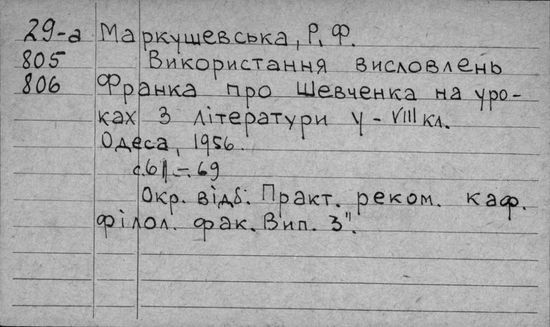 29-а Маркушевська, Р. Ф.
805 Використання висловлень
806 Франка про Шевченка на уро-
ках з літератури у - VIII кл.
Одеса, 1956.
с. 61 - 69
Окр. відб. Практ. реком. каф.
філол. фак. Вип. 3".